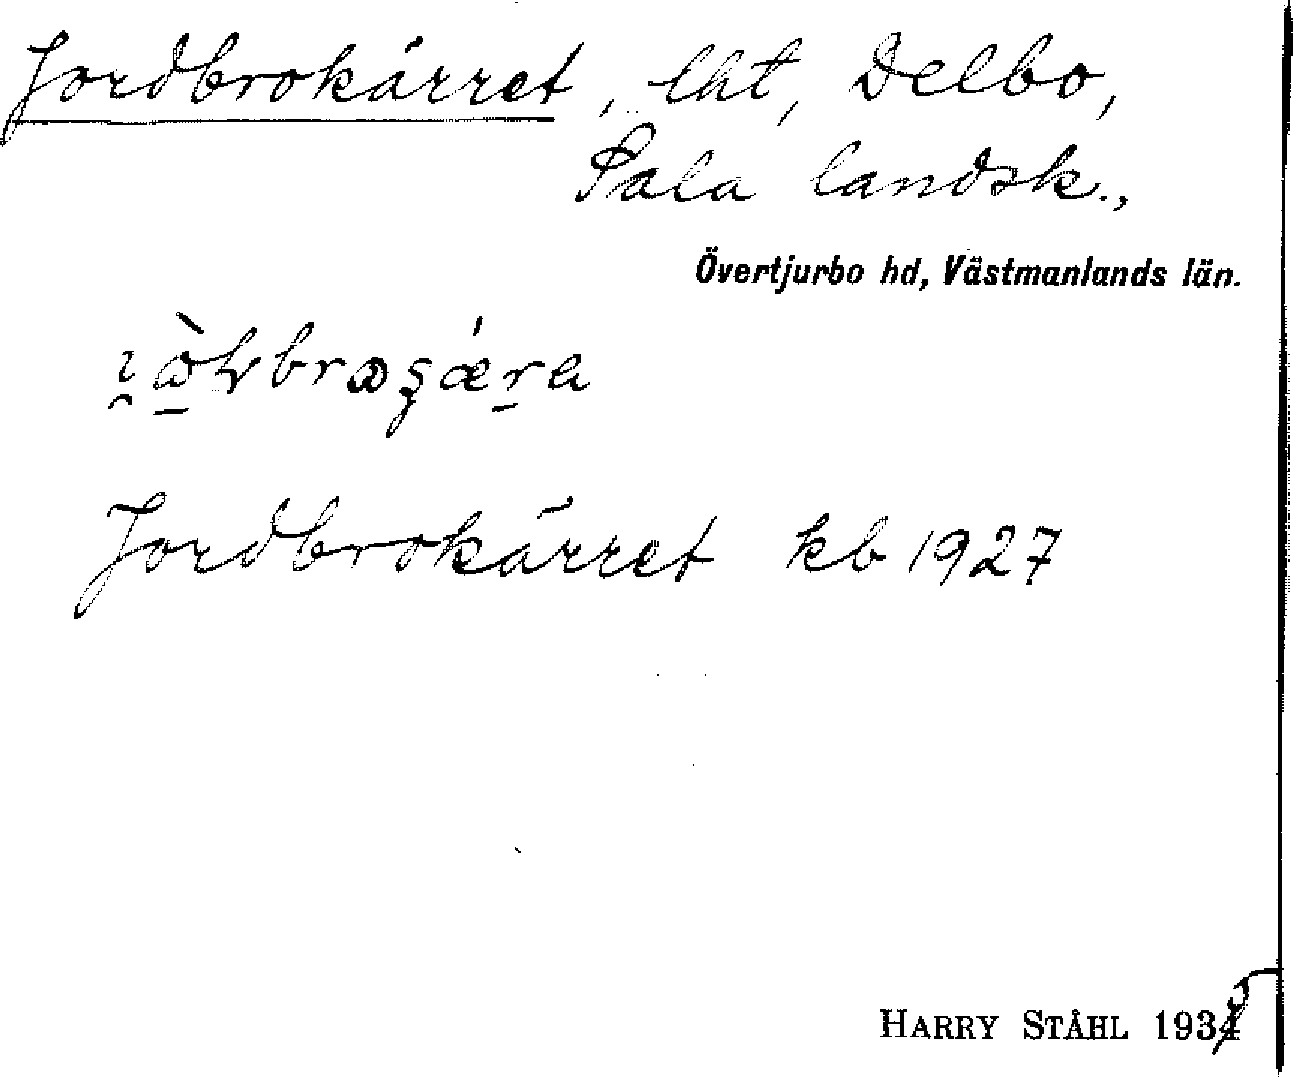 Jordbrokärret, lht, Delbo,
Sala landsk.,
Övertjurbo hd, Västmanlands län.
Jordbrokärret kb 1927
HARRY STÅHL 1935